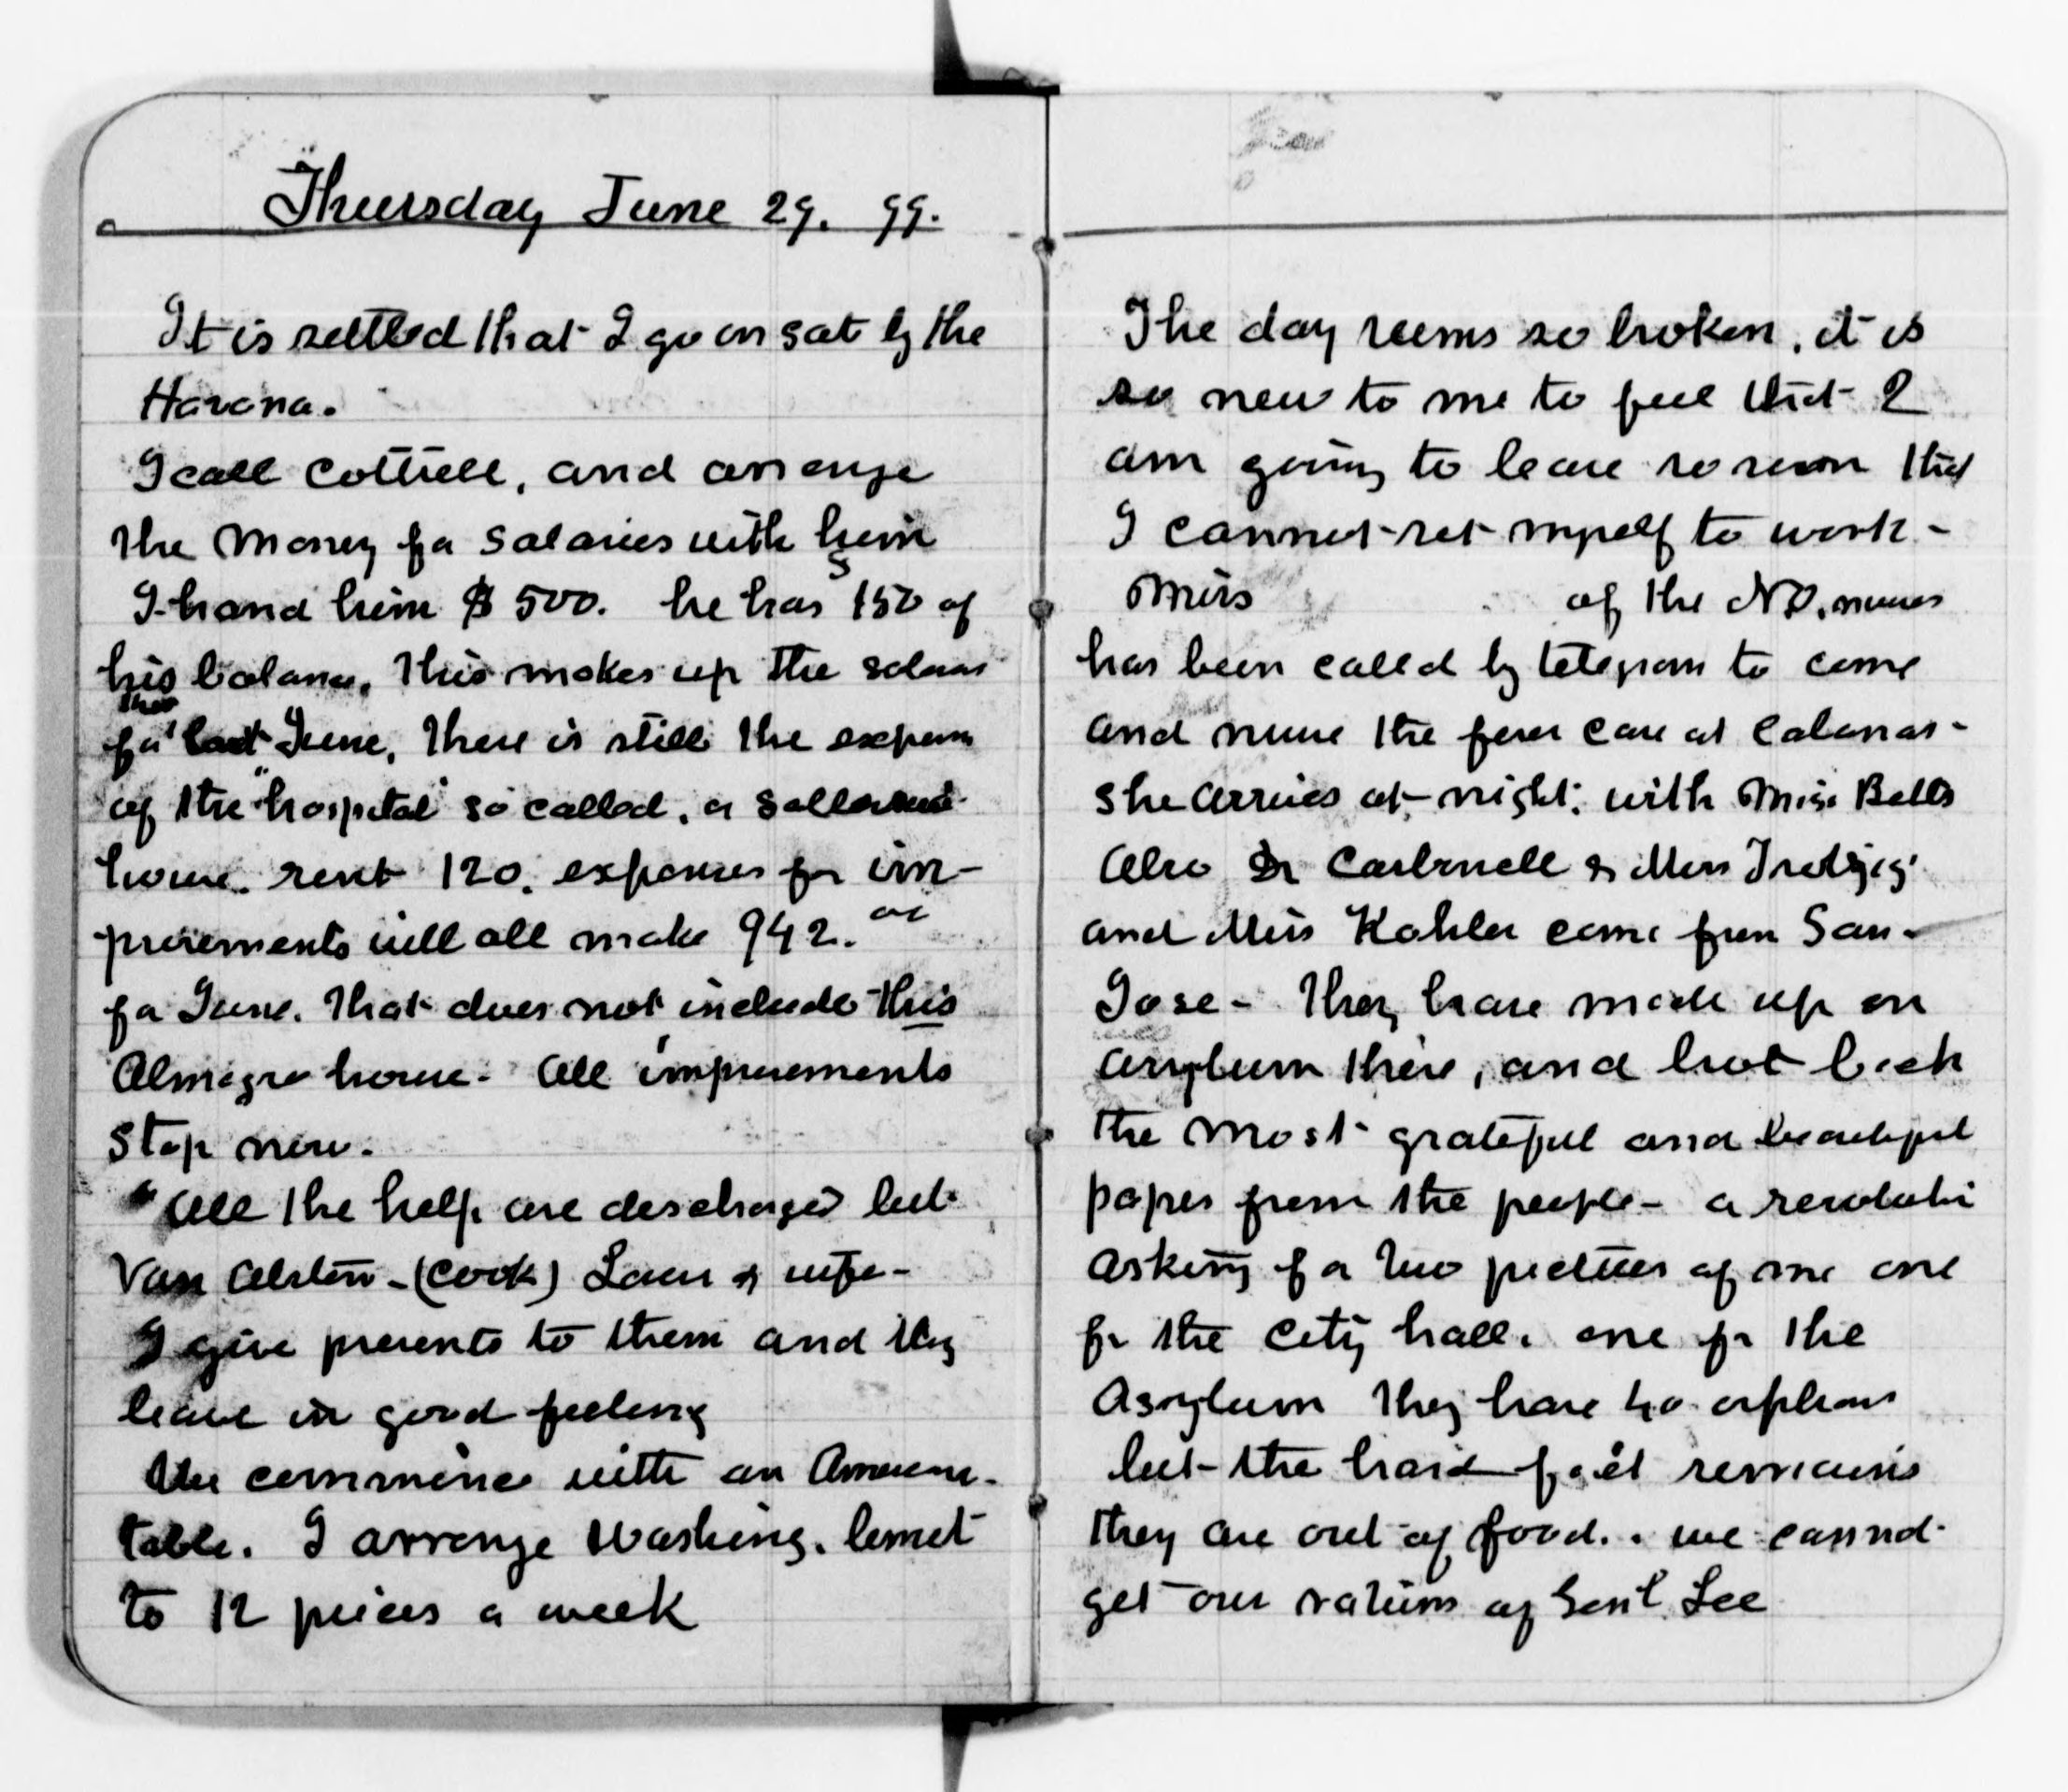 Thursday June 29. 99.
It is settled that I go on Sat by the
Havana.
I call Cottrell, and arrange
the money for salaries with him
I hand him $500. he has 150 of
his balance, this makes up the salaries
for this last June, there is still the expense
of the "hospital" so called, a
house. rent 120. expenses for im-
provements will all make 942.00
for June. That does not include this
Almagro house. All improvements
Stop now.
All the help are discharged but
Van Alstin - (cook) & wife -
I give presents to them and they
leave in good feeling
We commence with an American
table. I arrange washing. limet
to 12 pieces a week
The day seems so broken, it is
so new to me to feel that I
am going to leave so soon that
I cannot set myself to work -
Miss of the NO. nurses
has been called by telegram to come
and nurse the fever case at Cabanas -
She arrives at night. with Miss Betts
Also Dr Carbonell & Miss
and Miss Kohler come from San
Jose - They have made up an
asylum there, and brot back
the most grateful and beautiful
papers from the people - a resolution
asking for two pictures of me one
for the City hall. one for the
Asylum They have 40 orphans
but the hard fact remains
they are out of food. we cannot
get our rations of Genl. Lee